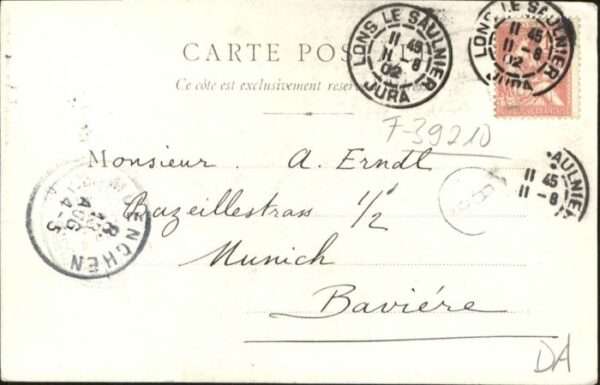 CARTE POSTALE
Ce côté est exclusivement réservé
LONS LE SAULNIER
11 45
11 - 8
02
JURA
LONS LE SAULNIER
11 45
11 - 8
02
JURA
F-39210
Monsieur A. Erndl
Bazeillestrass 1/2
Munich
Bavière
AULNIER
11 45
11 - 8
MUENCHEN
AUG
4-5
DA